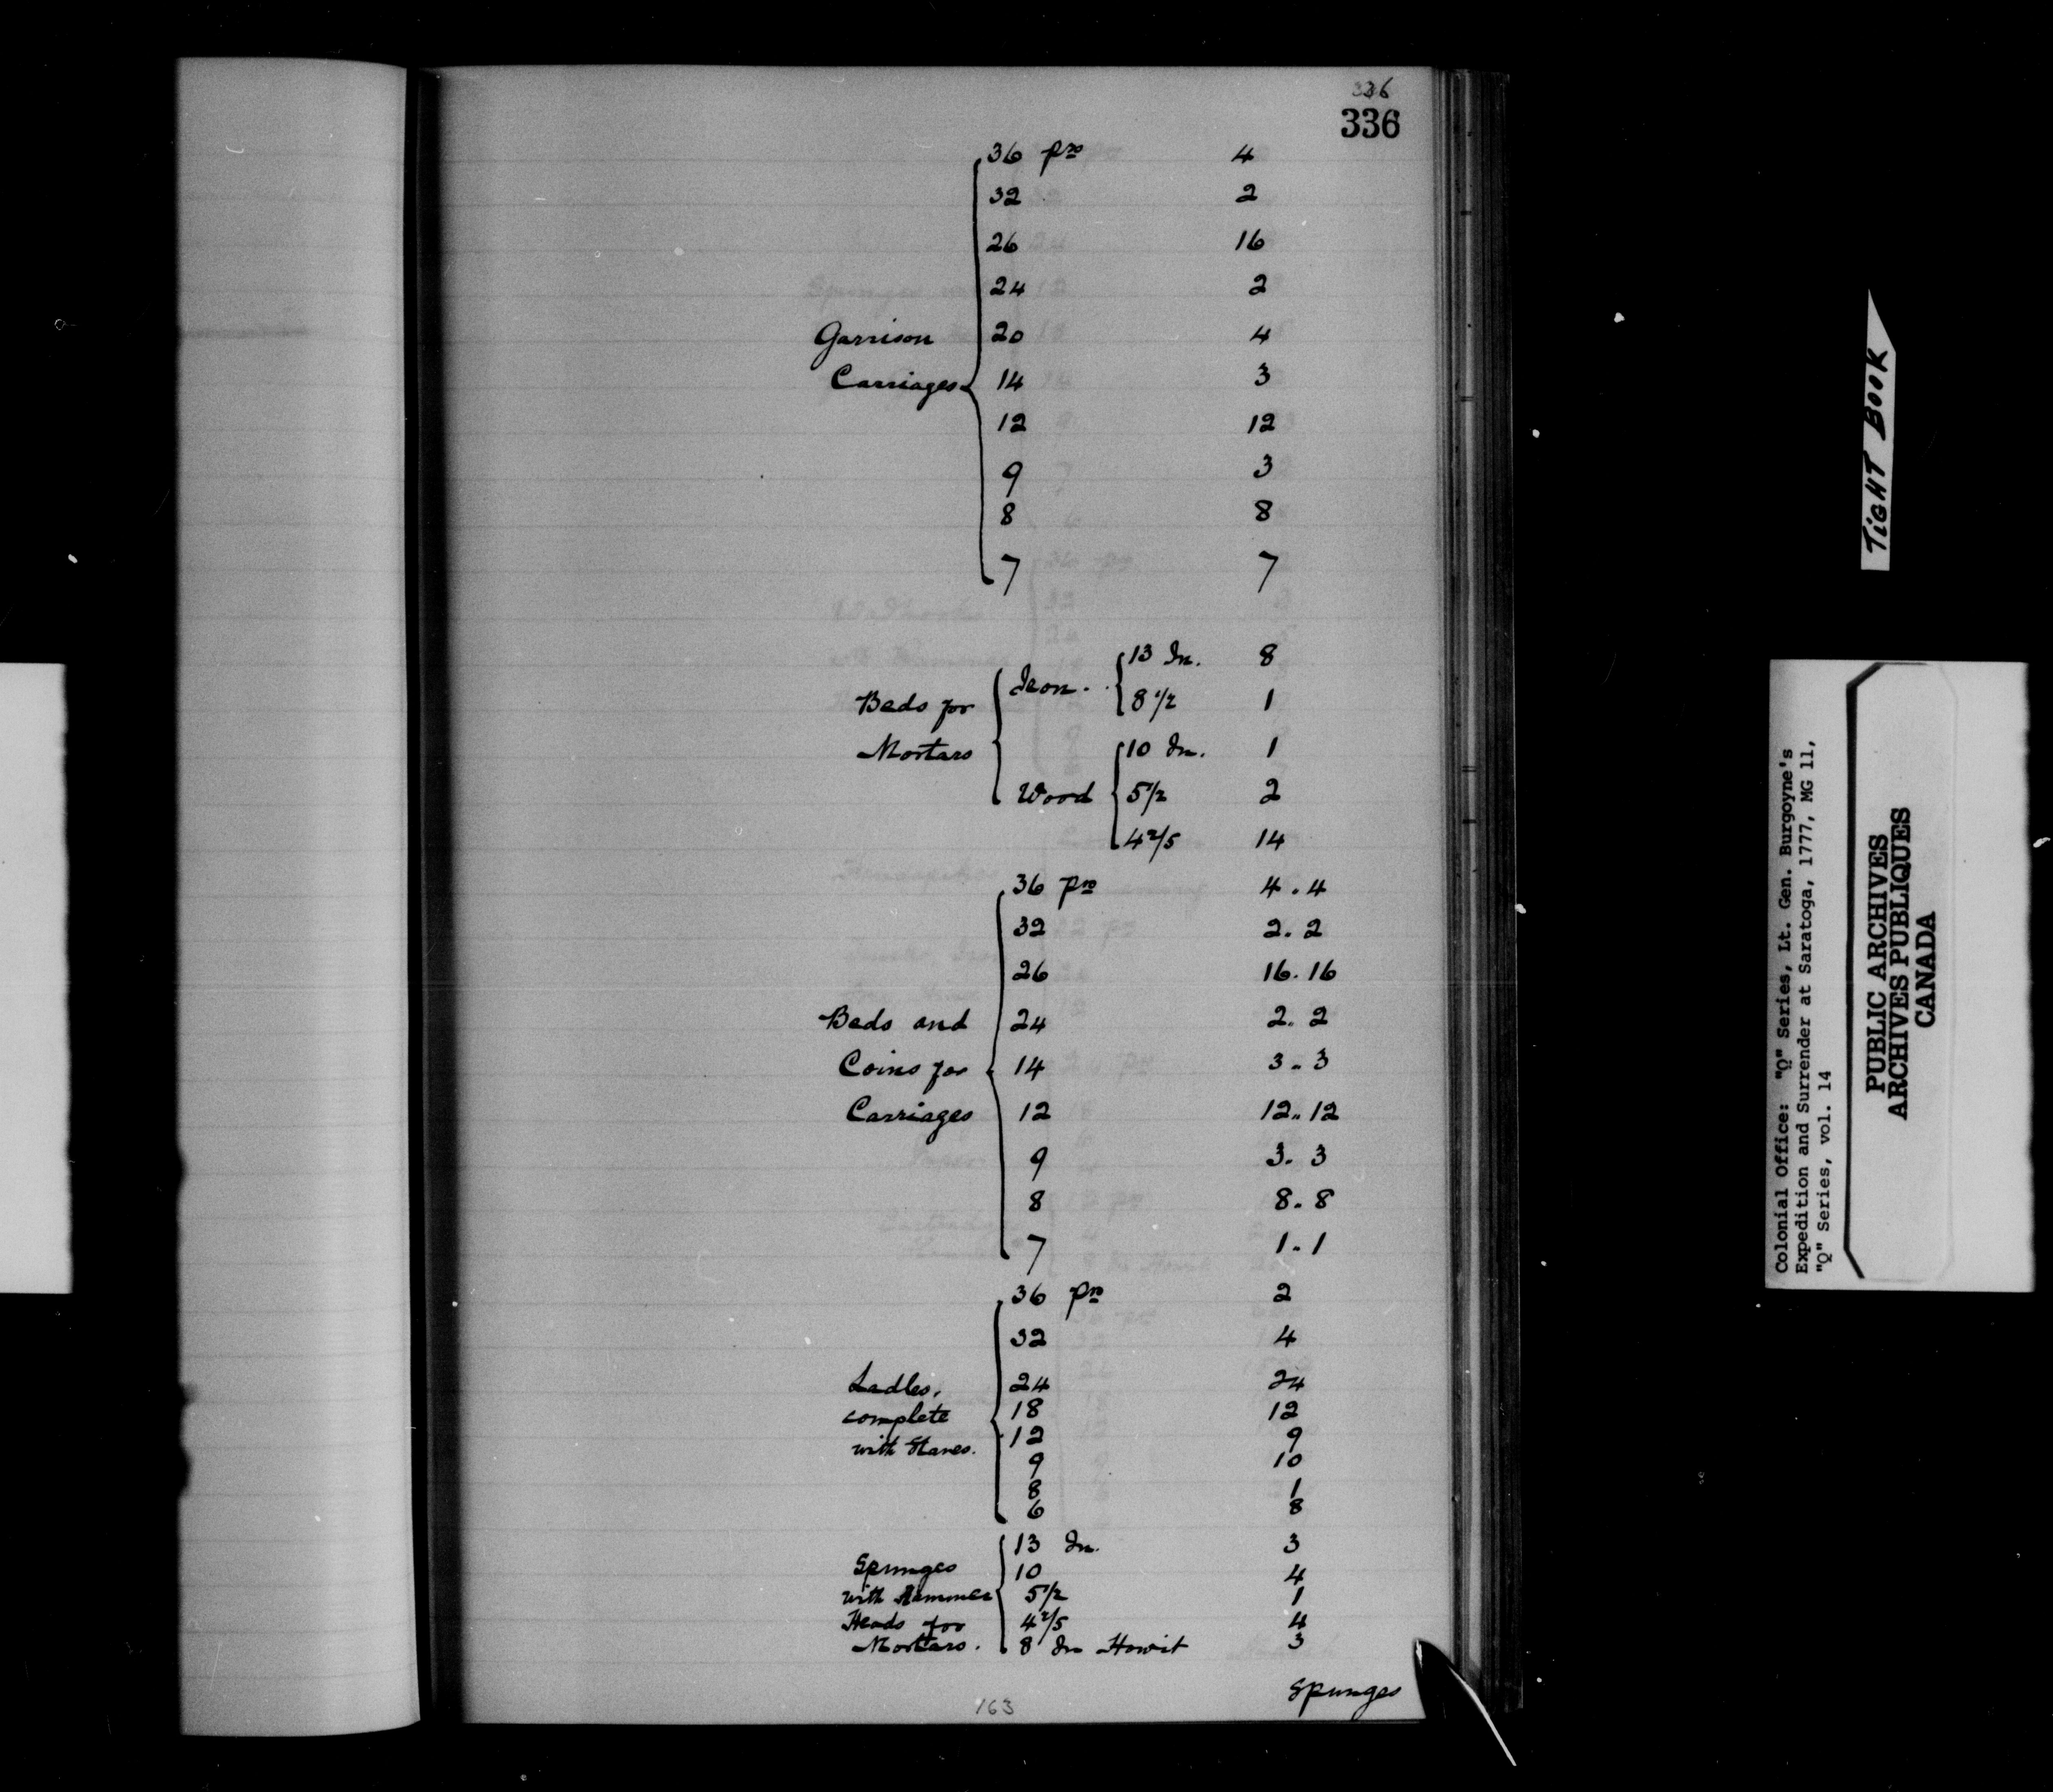 336
336
36 pre 4
32 2
26 16
24 2
Garrison 20 4
Carriages 14 3
12 12
9 3
8 8
7 7
Beds for Mortars
Iron. 13 In. 8
8 1/2 1
Wood 10 In. 1
5 1/2 2
4 2/5 14
36 pre 4.4
32 2.2
26 16.16
Beds and 24 2.2
Coins for 14 3.3
Carriages 12 12..12
9 3.3
8 8.8
7 1.1
36 pre 2
32 4
Ladles, 24 24
complete 18 12
with Staves. 12 9
9 10
8 1
6 8
13 In. 3
Spunges 10 4
with Rammer 5 1/2 1
Heads for 4 2/5 4
Mortars. 8 In Howit 3
Spunges
163
TIGHT BOOK
Colonial Office: "Q" Series, Lt. Gen. Burgoyne's
Expedition and Surrender at Saratoga, 1777, MG 11,
"Q" Series, vol. 14
PUBLIC ARCHIVES
ARCHIVES PUBLIQUES
CANADA